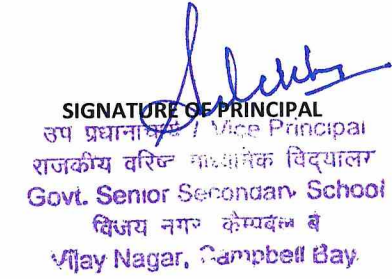 SIGNATURE OF PRINCIPAL
उप प्रधानाचार्य / Vice Principal
राजकीय वरिष्ठ माध्यमिक विद्यालय
Govt. Senior Secondary School
विजय नगर कैम्पबेल बे
Vijay Nagar, Campbell Bay